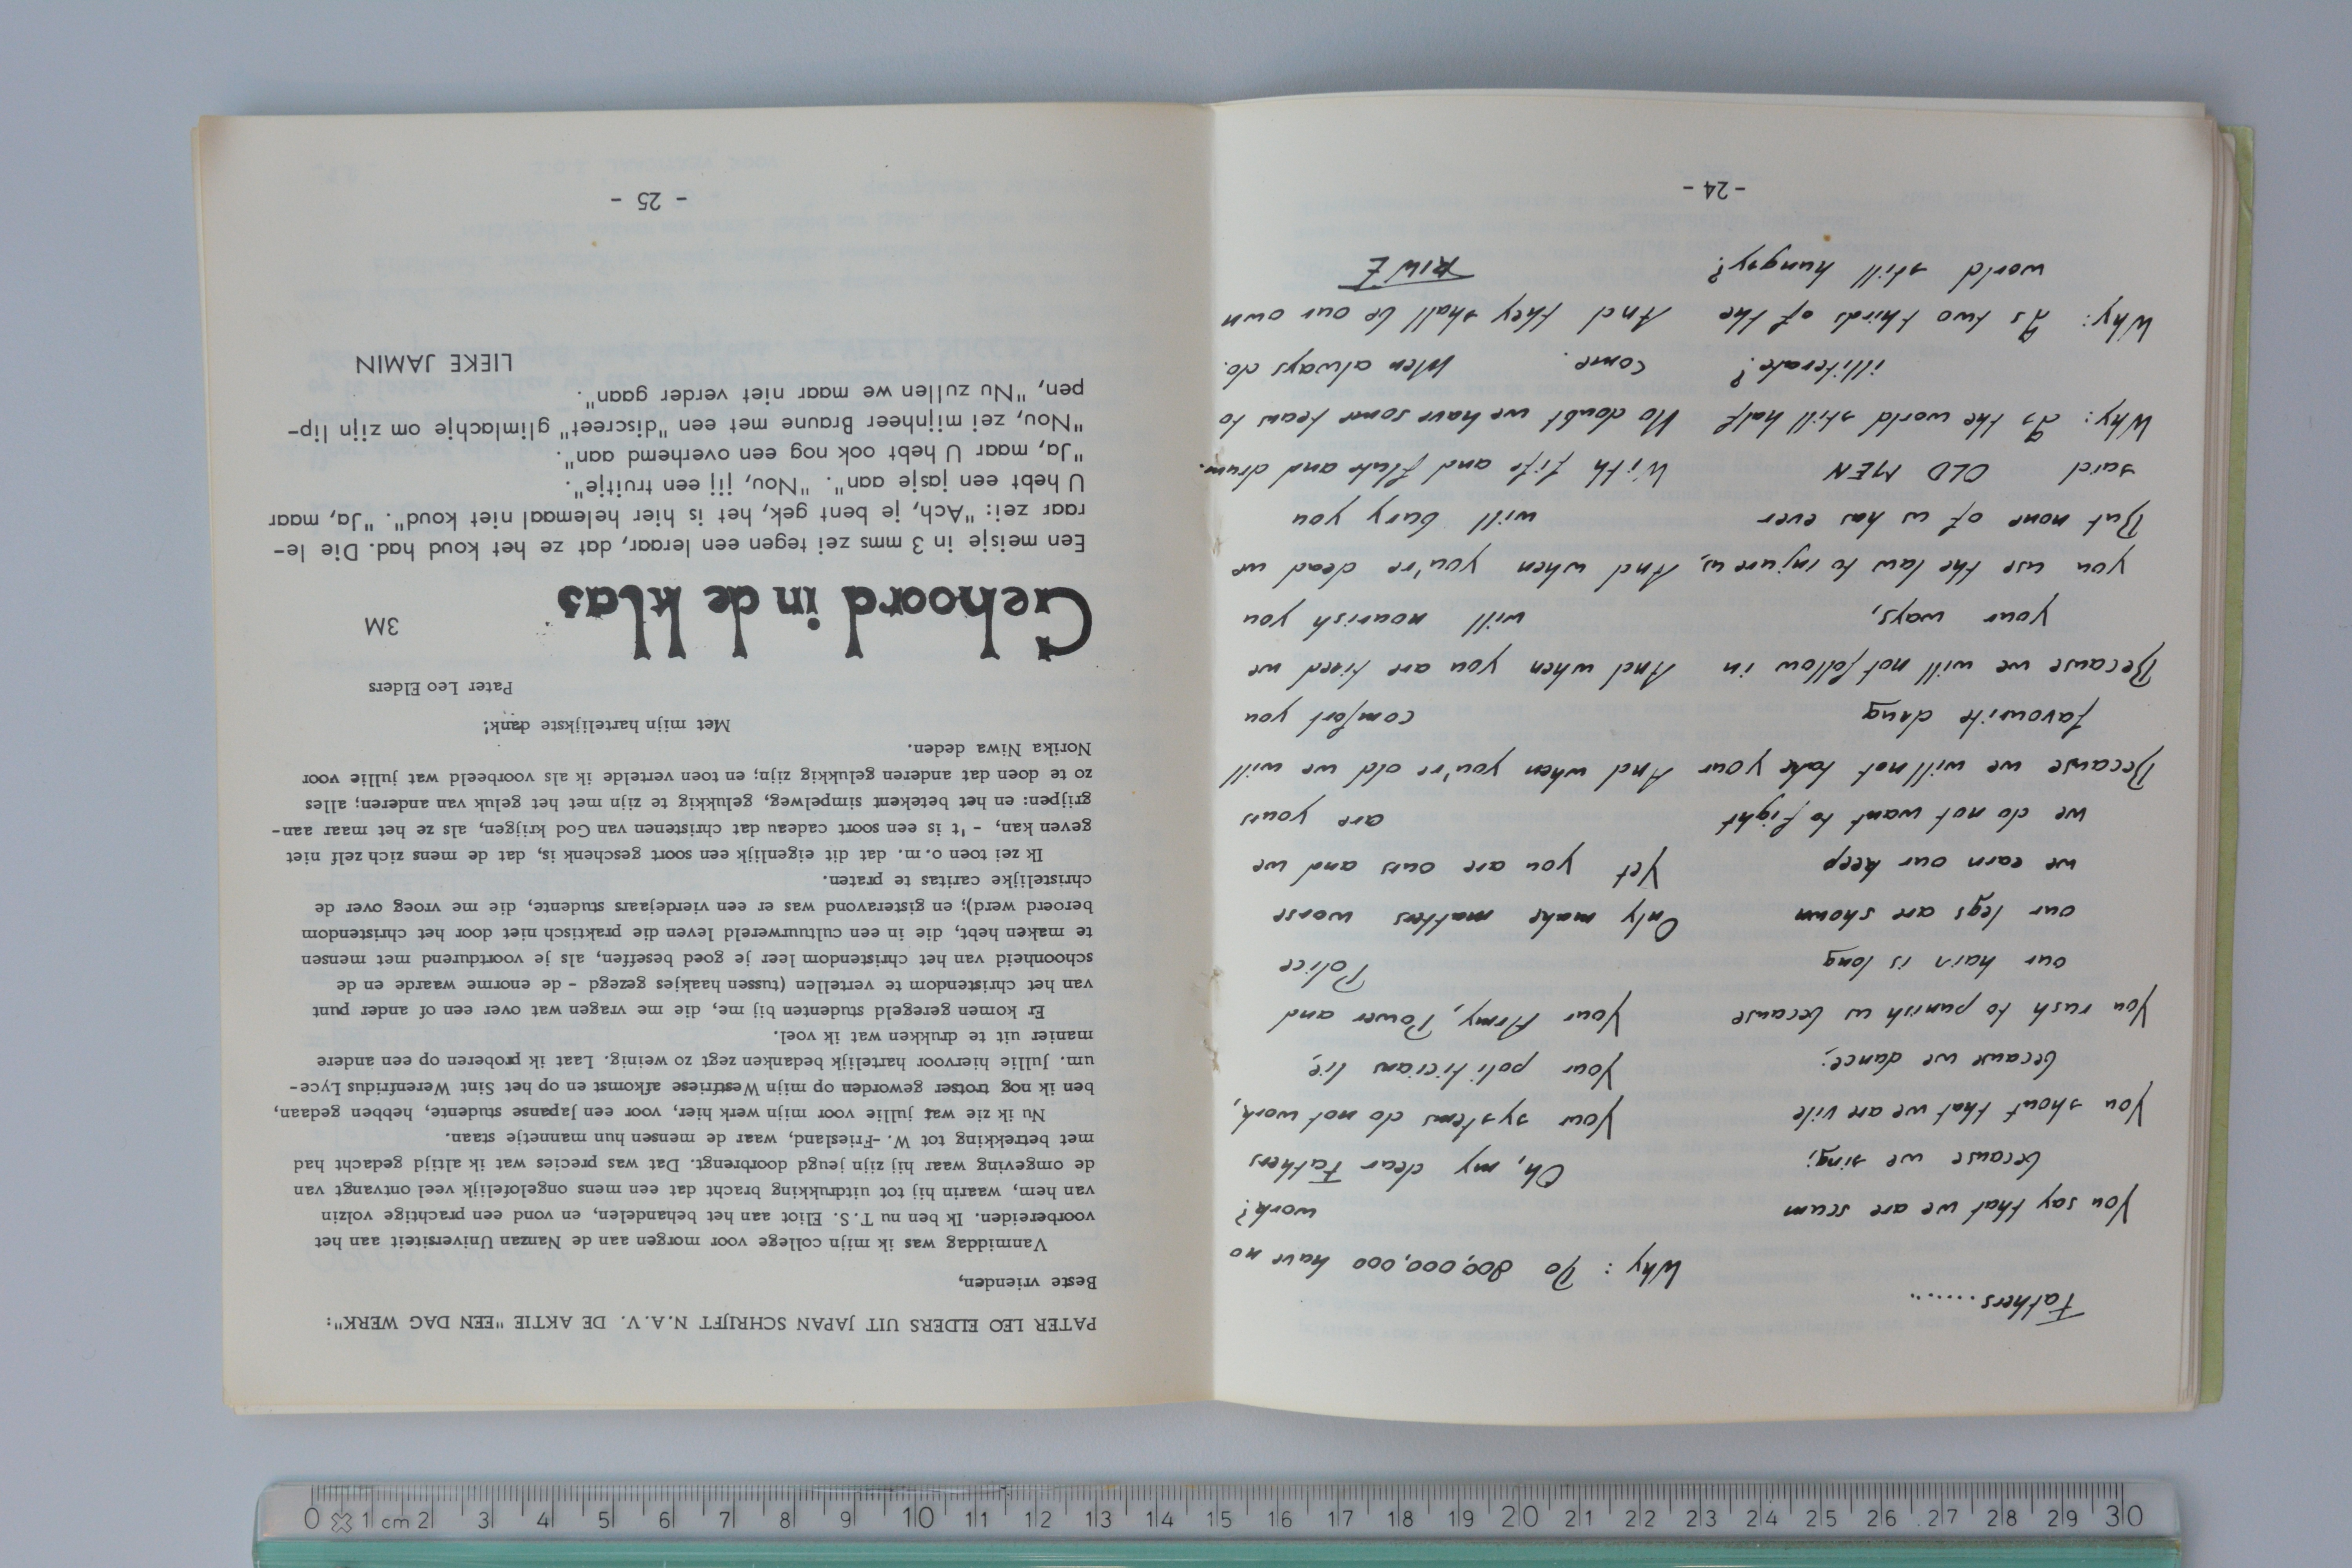 Fathers.......
You say that we are scum
because we sing;
You shout that we are vile
because we dance;
You rush to punish us because
our hair is long
our legs are shown
we earn our keep
we do not want to fight
Because we will not take your
favourite drug
Because we will not follow in
your ways,
you use the law to injure us,
But none of us has ever
said OLD MEN
Why: Is the world still half
illiterate?
Why: Is two thirds of the
world still hungry?
Why: Do 800,000,000 have no
work?
Oh, my dear Fathers
Your systems do not work,
Your politicians lie,
Your Army, Power and
Police
Only make matters worse
Yet you are ours and we
are yours
And when you're old we will
comfort you
And when you are tired we
will nourish you
And when you're dead we
will bury you
With fife and flute and drum.
No doubt we have some tears to
come. Men always do.
And they shall be our own
RIWE
-24-
PATER LEO ELDERS UIT JAPAN SCHRIJFT N.A.V. DE AKTIE "EEN DAG WERK":
Beste vrienden,
Vanmiddag was ik mijn college voor morgen aan de Nanzan Universiteit aan het
voorbereiden. Ik ben nu T.S. Eliot aan het behandelen, en vond een prachtige volzin
van hem, waarin hij tot uitdrukking bracht dat een mens ongelofelijk veel ontvangt van
de omgeving waar hij zijn jeugd doorbrengt. Dat was precies wat ik altijd gedacht had
met betrekking tot W.-Friesland, waar de mensen hun mannetje staan.
Nu ik zie wat jullie voor mijn werk hier, voor een Japanse studente, hebben gedaan,
ben ik nog trotser geworden op mijn Westfriese afkomst en op het Sint Werenfridus Lyce-
um. Jullie hiervoor hartelijk bedanken zegt zo weinig. Laat ik proberen op een andere
manier uit te drukken wat ik voel.
Er komen geregeld studenten bij me, die me vragen wat over een of ander punt
van het christendom te vertellen (tussen haakjes gezegd - de enorme waarde en de
schoonheid van het christendom leer je goed beseffen, als je voortdurend met mensen
te maken hebt, die in een cultuurwereld leven die praktisch niet door het christendom
beroerd werd); en gisteravond was er een vierdejaars studente, die me vroeg over de
christelijke caritas te praten.
Ik zei toen o.m. dat dit eigenlijk een soort geschenk is, dat de mens zich zelf niet
geven kan, - 't is een soort cadeau dat christenen van God krijgen, als ze het maar aan-
grijpen: en het betekent simpelweg, gelukkig te zijn met het geluk van anderen; alles
zo te doen dat anderen gelukkig zijn; en toen vertelde ik als voorbeeld wat jullie voor
Norika Niwa deden.
Met mijn hartelijkste dank!
Pater Leo Elders
Gehoord in de klas
3M
Een meisje in 3 mms zei tegen een leraar, dat ze het koud had. Die le-
raar zei: "Ach, je bent gek, het is hier helemaal niet koud". "Ja, maar
U hebt een jasje aan". "Nou, jij een truitje".
"Ja, maar U hebt ook nog een overhemd aan".
"Nou, zei mijnheer Braune met een "discreet" glimlachje om zijn lip-
pen, "Nu zullen we maar niet verder gaan".
LIEKE JAMIN
- 25 -
0 1 cm 2 3 4 5 6 7 8 9 10 11 12 13 14 15 16 17 18 19 20 21 22 23 24 25 26 27 28 29 30